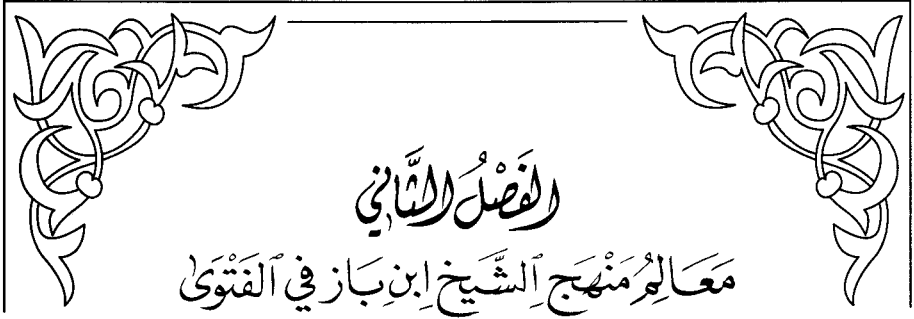 الفَصْلُ الثَّانِي
مَعَالِمُ مَنْهَجِ ٱلشَّيخِ ابْنِ بَاز فِي ٱلفَتْوَىٰ